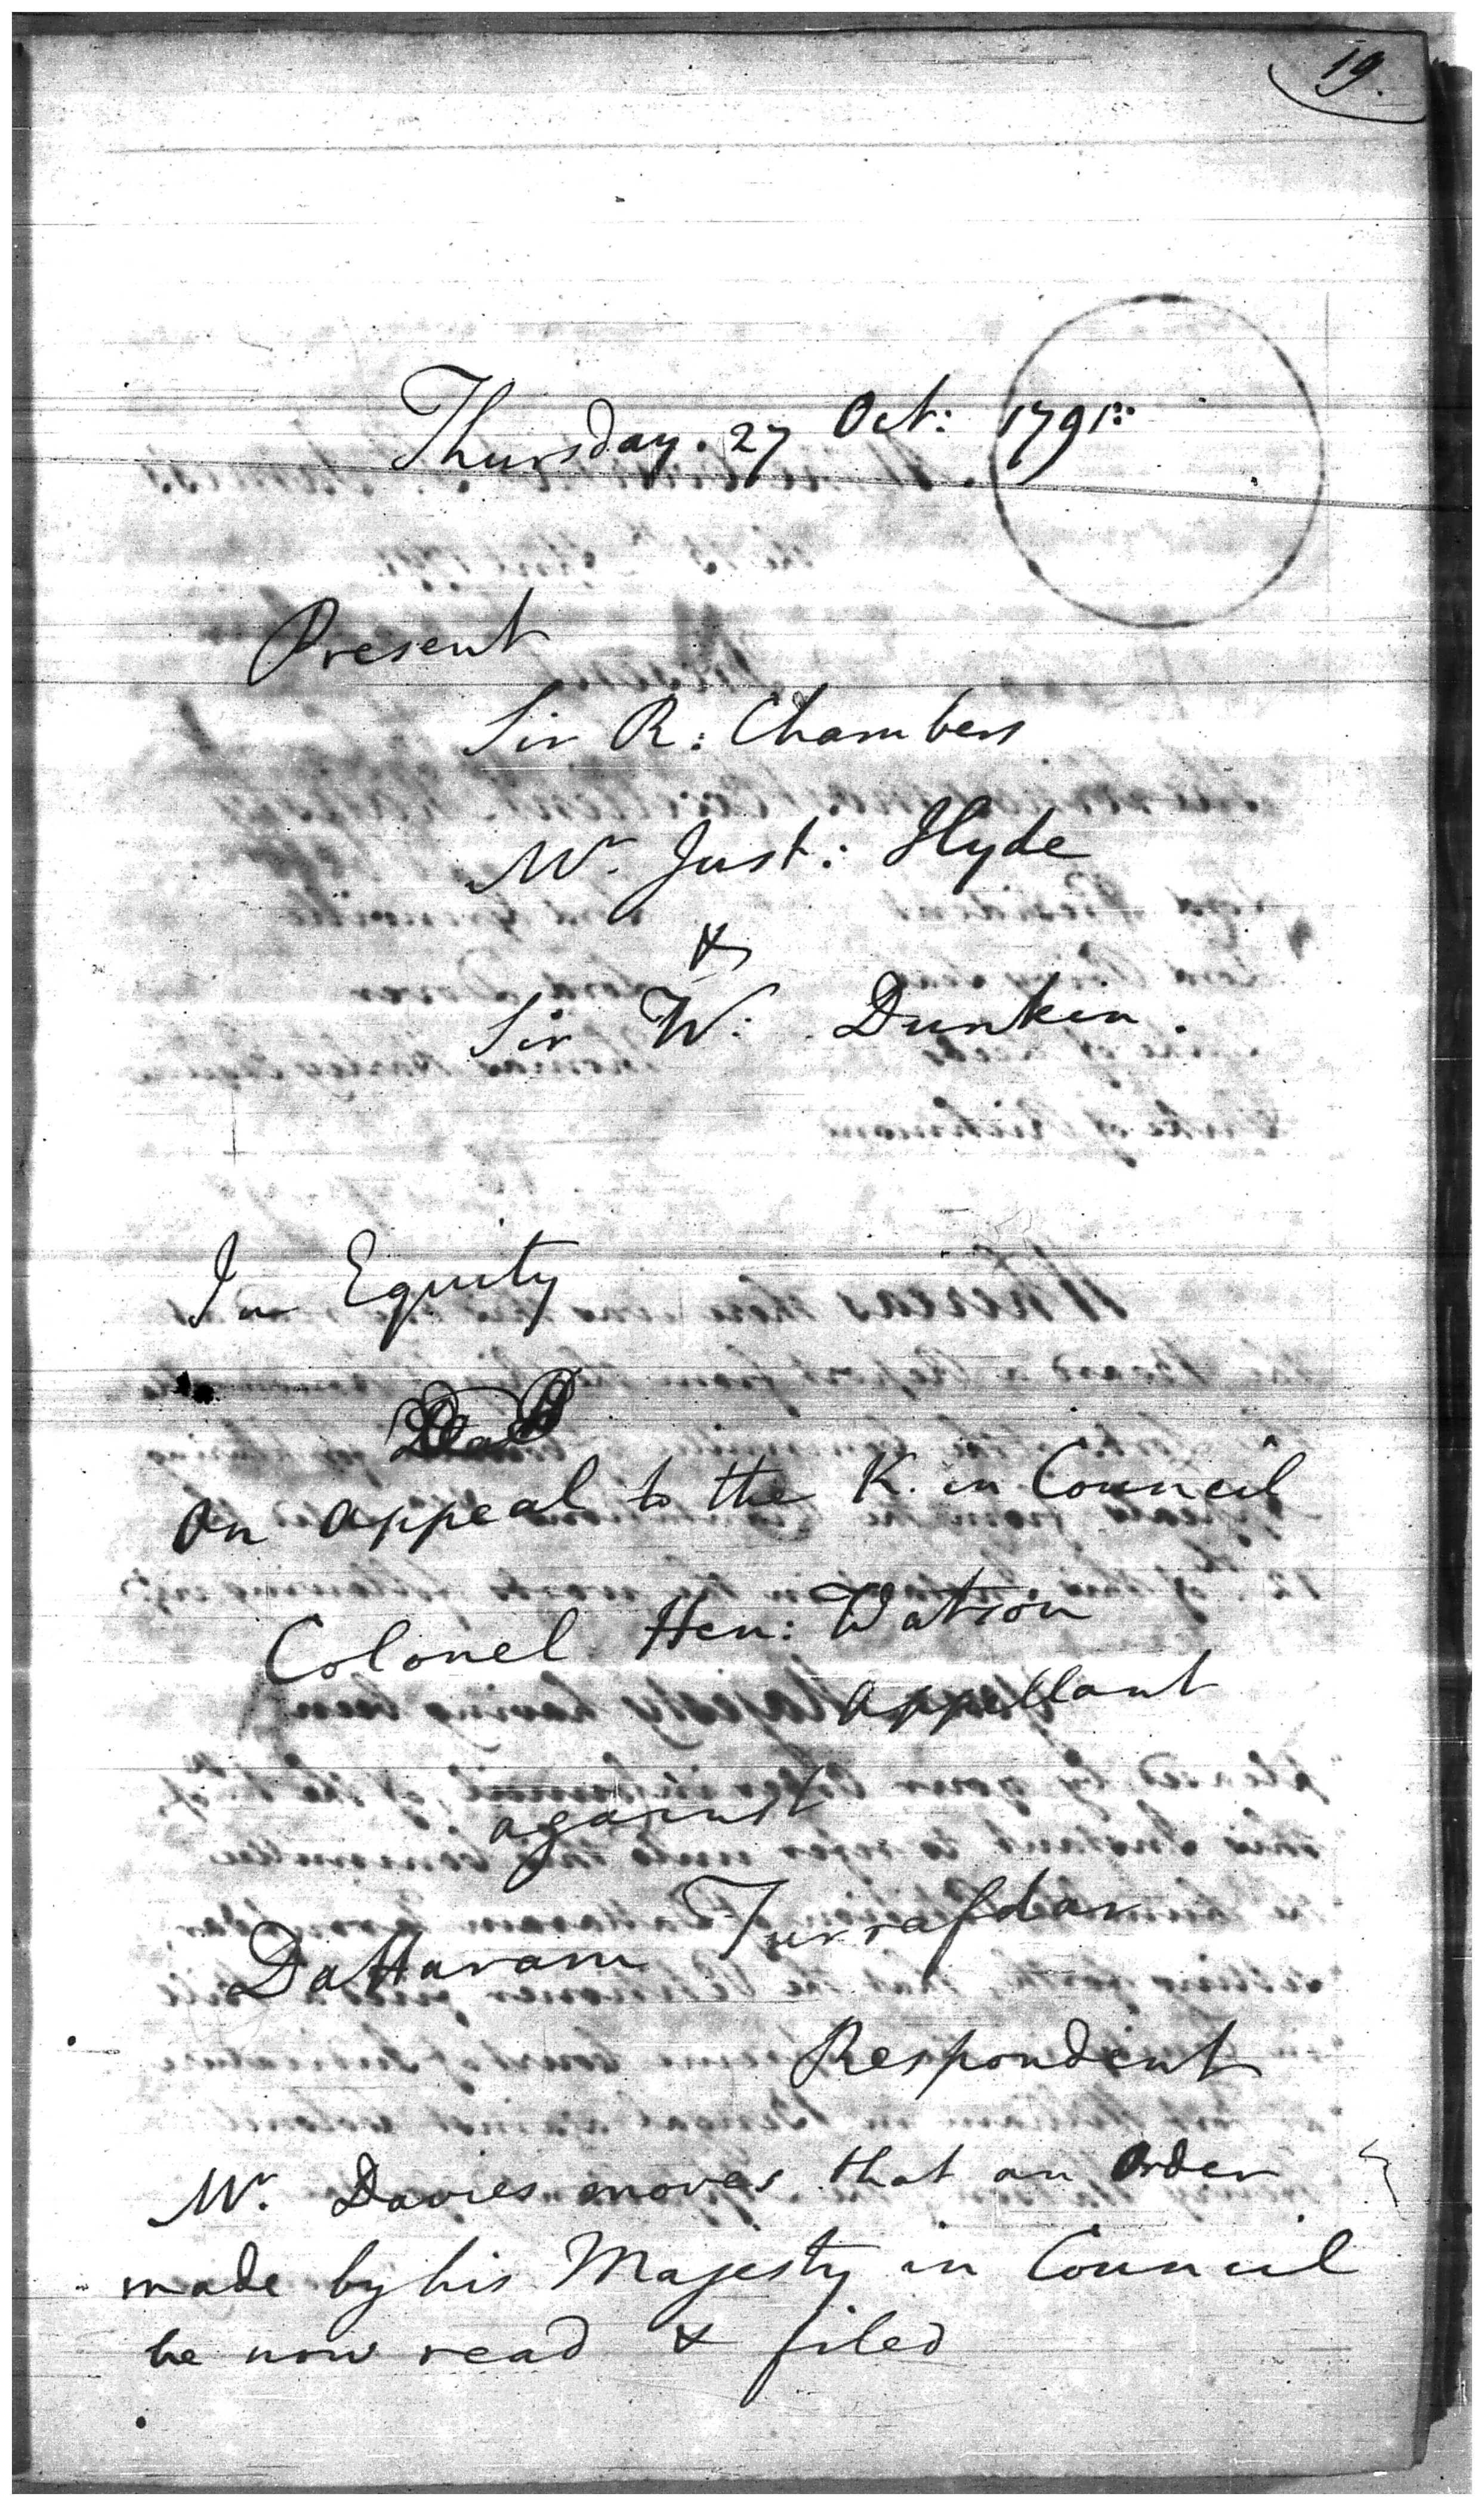 19.
Thursday. 27 Oct: 1791:
Present
Sir R: Chambers
Mr. Just: Hyde
&
Sir W: Dunkin.
In Equity
On appeal to the K. in Council
Colonel Hen: Watson
appellant
against
Dattaram Turrafdar
Respondent
Mr. Davies moves that an Order
made by his Majesty in Council
be now read & filed